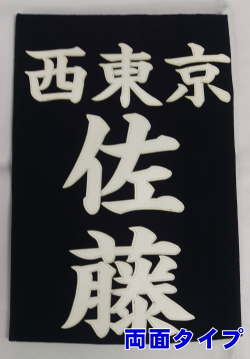 西東京
佐
藤
両面タイプ